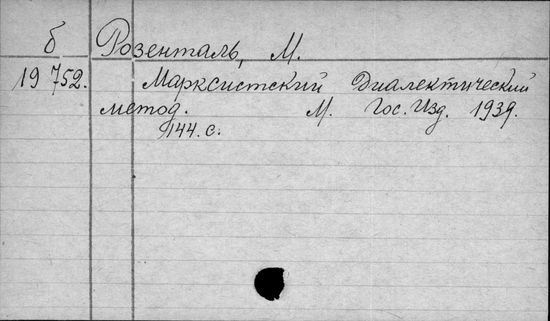 б Розенталь, М.
19 752. Марксистский Диалектический
метод. М. Гос. Изд. 1939.
144. с.